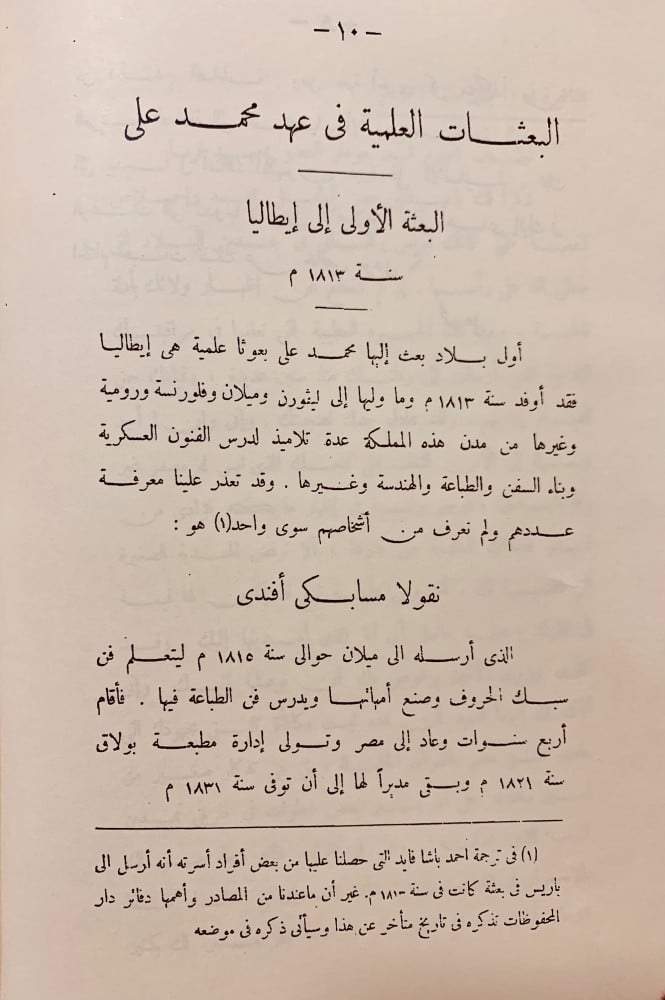 — ١٠ —
البعثات العلمية فى عهد محمد على
البعثة الأولى إلى إيطاليا
سنة ١٨١٣ م
أول بلاد بعث إليها محمد على بعوثا علمية هى إيطاليا
فقد أوفد سنة ١٨١٣ م وما وليها إلى ليڤورن وميلان وفلورنسة ورومية
وغيرها من مدن هذه المملكة عدة تلاميذ لدرس الفنون العسكرية
وبناء السفن والطباعة والهندسة وغيرها . وقد تعذر علينا معرفة
عددهم ولم نعرف من أشخاصهم سوى واحد(١) هو :
نقولا مسابكى أفندى
الذى أرسله الى ميلان حوالى سنة ١٨١٥ م ليتعلم فن
سبك الحروف وصنع أمهاتها ويدرس فن الطباعة فيها . فأقام
أربع سنوات وعاد إلى مصر وتولى إدارة مطبعة بولاق
سنة ١٨٢١ م وبقى مديراً لها إلى أن توفى سنة ١٨٣١ م
(١) فى ترجمة احمد باشا فايد التى حصلنا عليها من بعض أفراد أسرته أنه أرسل الى
باريس فى بعثة كانت فى سنة ١٨١٠ م. غير أن ماعندنا من المصادر وأهمها دفاتر دار
المحفوظات تذكره فى تاريخ متأخر عن هذا وسيأتى ذكره فى موضعه